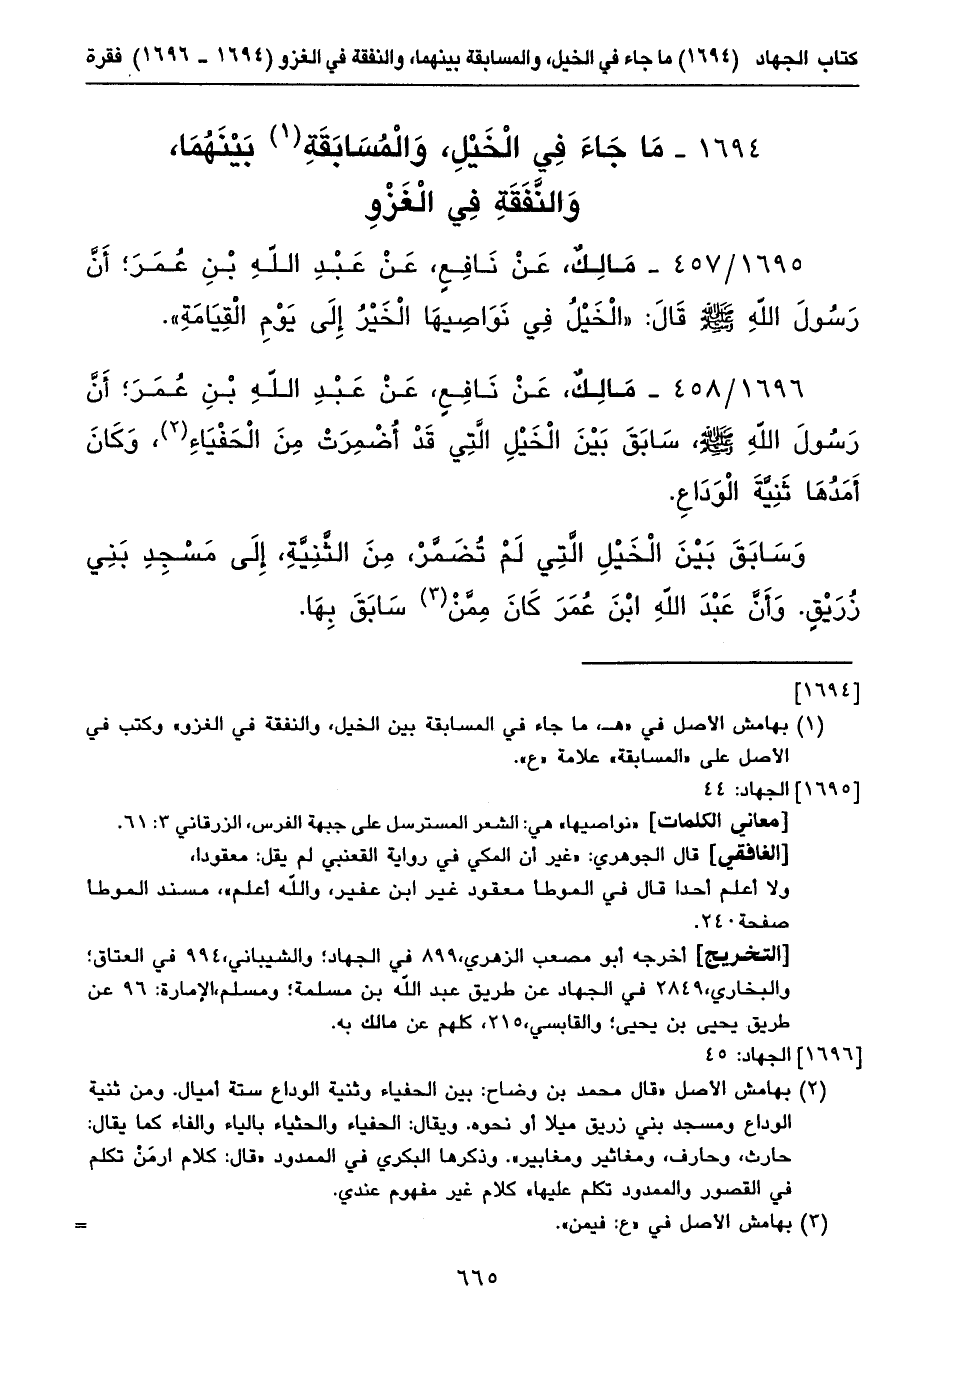 كتاب الجهاد (١٦٩٤) ما جاء في الخيل، والمسابقة بينهما، والنفقة في الغزو (١٦٩٤ ـ ١٦٩٦) فقرة
١٦٩٤ ـ مَا جَاءَ فِي الْخَيْلِ، وَالْمُسَابَقَةِ(١) بَيْنَهُمَا،
وَالنَّفَقَةِ فِي الْغَزْوِ
٤٥٧/١٦٩٥ ـ مَالِكٌ، عَنْ نَافِعٍ، عَنْ عَبْدِ اللّهِ بْنِ عُمَرَ؛ أَنَّ
رَسُولَ اللّهِ ﷺ قَالَ: «الْخَيْلُ فِي نَوَاصِيهَا الْخَيْرُ إِلَى يَوْمِ الْقِيَامَةِ».
٤٥٨/١٦٩٦ ـ مَالِكٌ، عَنْ نَافِعٍ، عَنْ عَبْدِ اللّهِ بْنِ عُمَرَ؛ أَنَّ
رَسُولَ اللّهِ ﷺ، سَابَقَ بَيْنَ الْخَيْلِ الَّتِي قَدْ أُضْمِرَتْ مِنَ الْحَفْيَاءِ(٢)، وَكَانَ
أَمَدُهَا ثَنِيَّةَ الْوَدَاعِ.
وَسَابَقَ بَيْنَ الْخَيْلِ الَّتِي لَمْ تُضَمَّرْ، مِنَ الثَّنِيَّةِ، إِلَى مَسْجِدِ بَنِي
زُرَيْقٍ. وَأَنَّ عَبْدَ اللّهِ ابْنَ عُمَرَ كَانَ مِمَّنْ(٣) سَابَقَ بِهَا.
[١٦٩٤]
(١) بهامش الأصل في «هـ، ما جاء في المسابقة بين الخيل، والنفقة في الغزو» وكتب في
الأصل على «المسابقة» علامة «ع».
[١٦٩٥] الجهاد: ٤٤
[معاني الكلمات] «نواصيها» هي: الشعر المسترسل على جبهة الفرس، الزرقاني ٣: ٦١.
[الغافقي] قال الجوهري: «غير أن المكي في رواية القعنبي لم يقل: معقودا،
ولا أعلم أحدا قال في الموطأ معقود غير ابن عفير، واللّه أعلم»، مسند الموطأ
صفحة٢٤٠.
[التخريج] أخرجه أبو مصعب الزهري،٨٩٩ في الجهاد؛ والشيباني،٩٩٤ في العتاق؛
والبخاري،٢٨٤٩ في الجهاد عن طريق عبد اللّه بن مسلمة؛ ومسلم،الإمارة: ٩٦ عن
طريق يحيى بن يحيى؛ والقابسي،٢١٥، كلهم عن مالك به.
[١٦٩٦] الجهاد: ٤٥
(٢) بهامش الأصل «قال محمد بن وضاح: بين الحفياء وثنية الوداع ستة أميال. ومن ثنية
الوداع ومسجد بني زريق ميلا أو نحوه. ويقال: الحفياء والحثياء بالياء والفاء كما يقال:
حارث، وحارف، ومغاثير ومغابير». وذكرها البكري في الممدود «قال: كلام ارمَنْ تكلم
في القصور والممدود تكلم عليها» كلام غير مفهوم عندي.
(٣) بهامش الأصل في «ع: فيمن».
=
٦٦٥